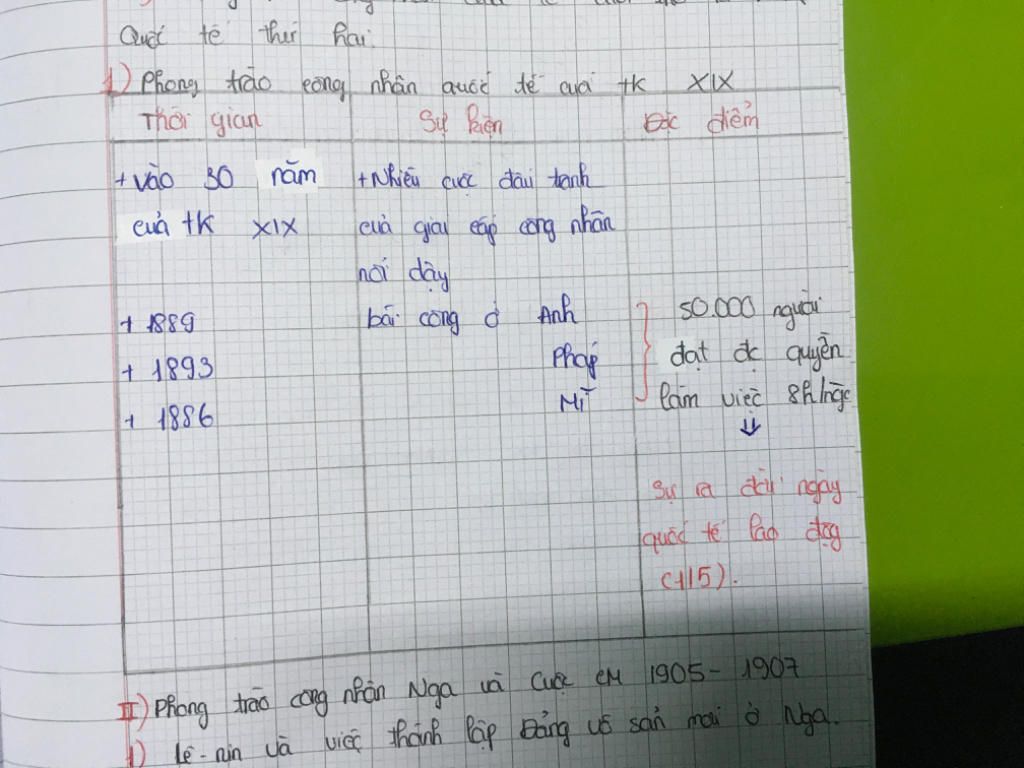 Quốc tế thứ hai.
1) Phong trào công nhân quốc tế cuối tk XIX
Thời gian Sự kiện Đặc điểm
+ vào 30 năm + Nhiều cuộc đấu tranh
cuả tk XIX cuả giai cấp công nhân
nổi dậy
+ 1889 bãi công ở Anh 50.000 người
+ 1893 Pháp đạt đc quyền
+ 1886 Mĩ làm việc 8h/ngày
⇓
Sự ra đời ngày
quốc tế lao động
(1/5).
II) Phong trào công nhân Nga và Cuộc CM 1905 - 1907
1) Lê-nin và việc thành lập Đảng vô sản mới ở Nga.